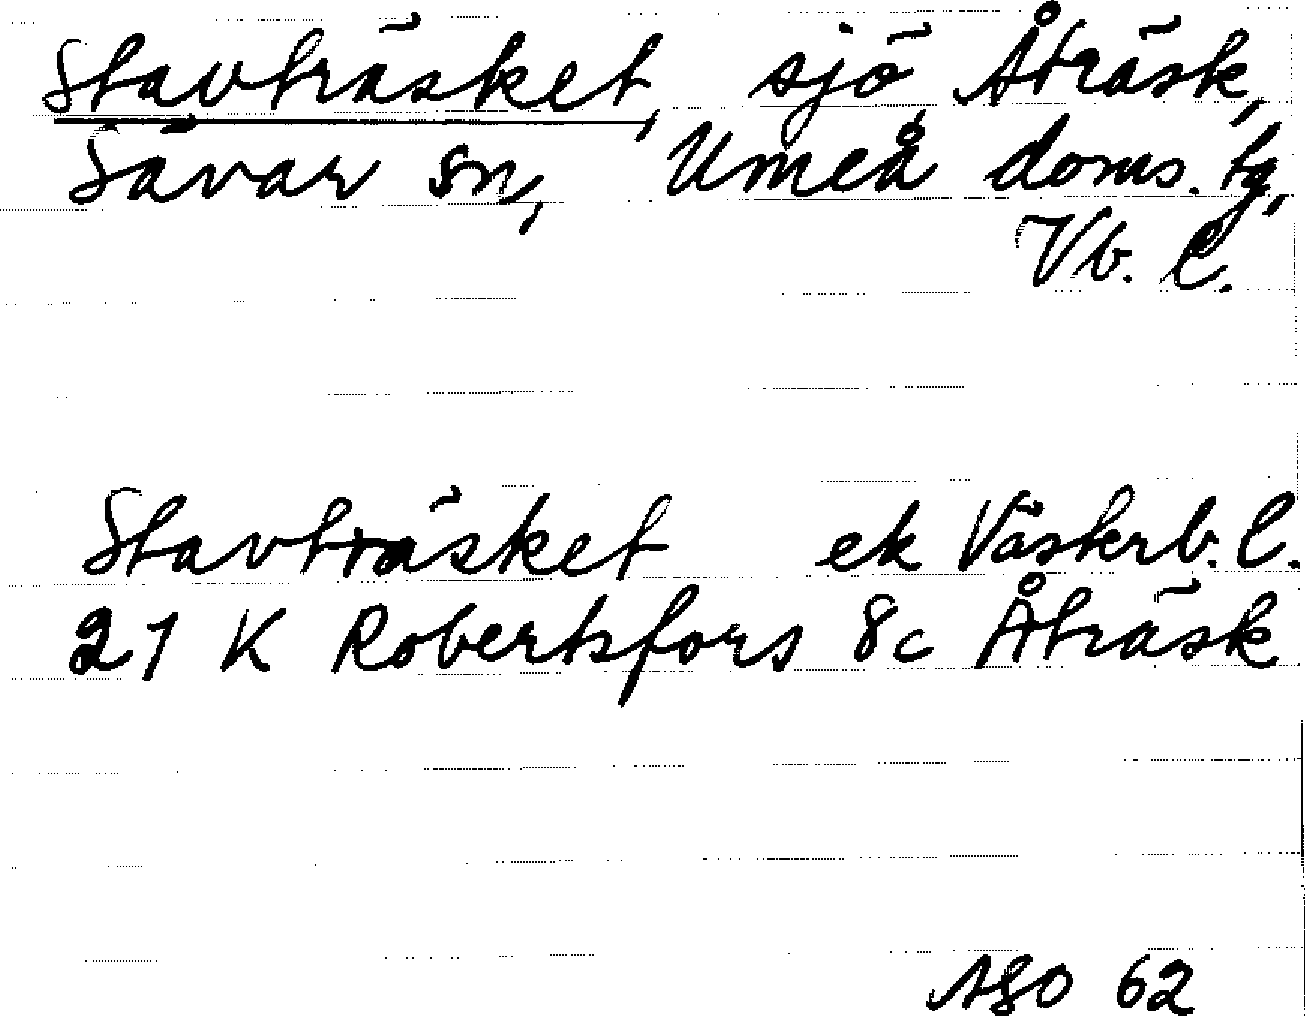 Stavträsket, sjö, Åträsk,
Sävar sn, Umeå doms. tg,
Vb. l.
Stavträsket ek Västerb. l.
21 K Robertsfors 8c Åträsk
62